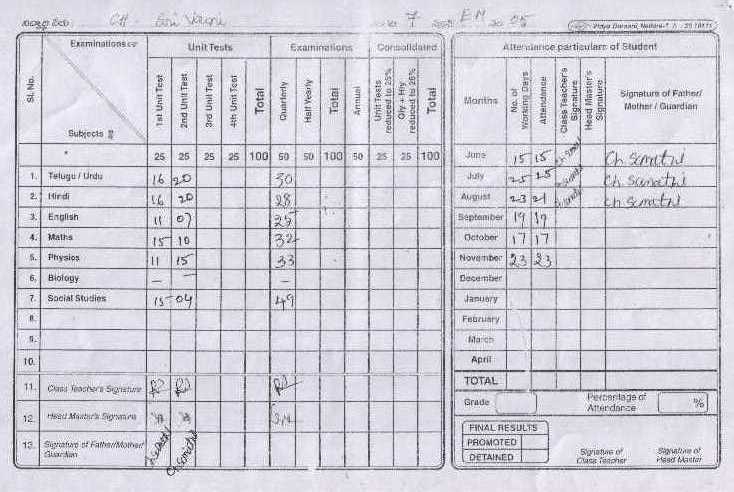 CH. 7 EM 2005
Examinations Unit Tests Examinations Consolidated
Sl. No. Subjects 1st Unit Test 2nd Unit Test 3rd Unit Test 4th Unit Test Total Quarterly Half Yearly Total Annual Unit Tests reduced to 25% Qly + Hly reduced to 25% Total
25 25 25 25 100 50 50 100 50 25 25 100
1. Telugu / Urdu 16 20 30
2. Hindi 16 20 28
3. English 11 07 25
4. Maths 15 10 32
5. Physics 11 15 33
6. Biology – – –
7. Social Studies 15 04 49
8.
9.
10.
11. Class Teacher's Signature
12. Head Master's Signature
13. Signature of Father/Mother/
Guardian
Attendance particulars of Student
Months No. of Working Days Attendance Class Teacher's Signature Head Master's Signature Signature of Father/
Mother / Guardian
June 15 15
July 25 25
August 23 21
September 19 19
October 17 17
November 23 23
December
January
February
March
April
TOTAL
Grade Percentage of
Attendance %
FINAL RESULTS
PROMOTED
DETAINED
Signature of
Class Teacher
Signature of
Head Master